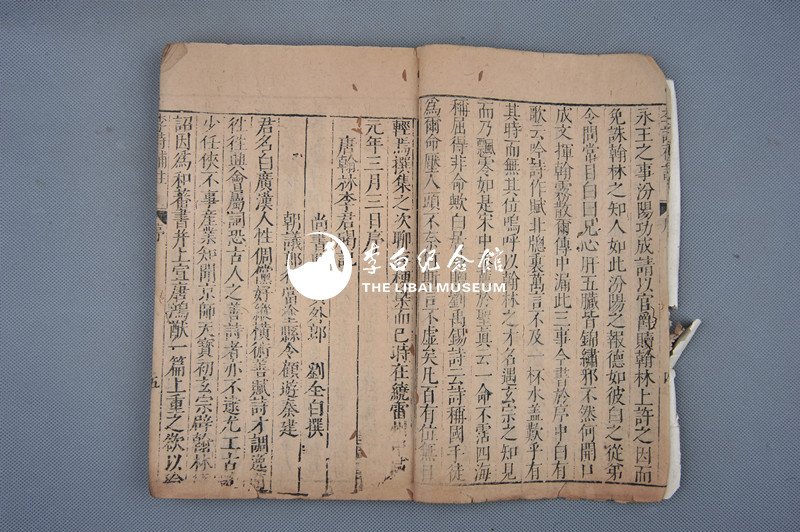 永王之事汾陽功成請以官爵贖翰林上許之因而
免誅翰林之知人如此汾陽之報德如彼白之從弟
令問常目白曰兄心肝五臟皆錦繡邪不然何開口
成文揮翰霧散爾傳中漏此三事今書於序中白有
歌云吟詩作賦北牕裏萬言不及一杯水蓋歎乎有
其時而無其位嗚呼以翰林之才名遇玄宗之知見
而乃飄零如是宋中
於聖真云一命不霑四海
稱屈得非命歟白居易
劉禹錫詩云詩稱國手徒
為爾命壓人頭不奈何
言不虛矣凡百有位無自
輕焉撰集之次聊
而已時在繞霤
元年三月三日
唐翰林李君碣記
尚書
員外郎 劉全白撰
朝議郎行當塗縣令顧遊秦建
君名白廣漢人性倜儻好縱橫術善賦詩才調逸邁
往往興會屬詞恐古人之善詩者亦不逮尤工古
少任俠不事產業知聞京師天寶初玄宗辟翰林待
詔因為和蕃書并上宣唐鴻猷一篇上重之欲以
五
李白纪念馆
THE LIBAI MUSEUM